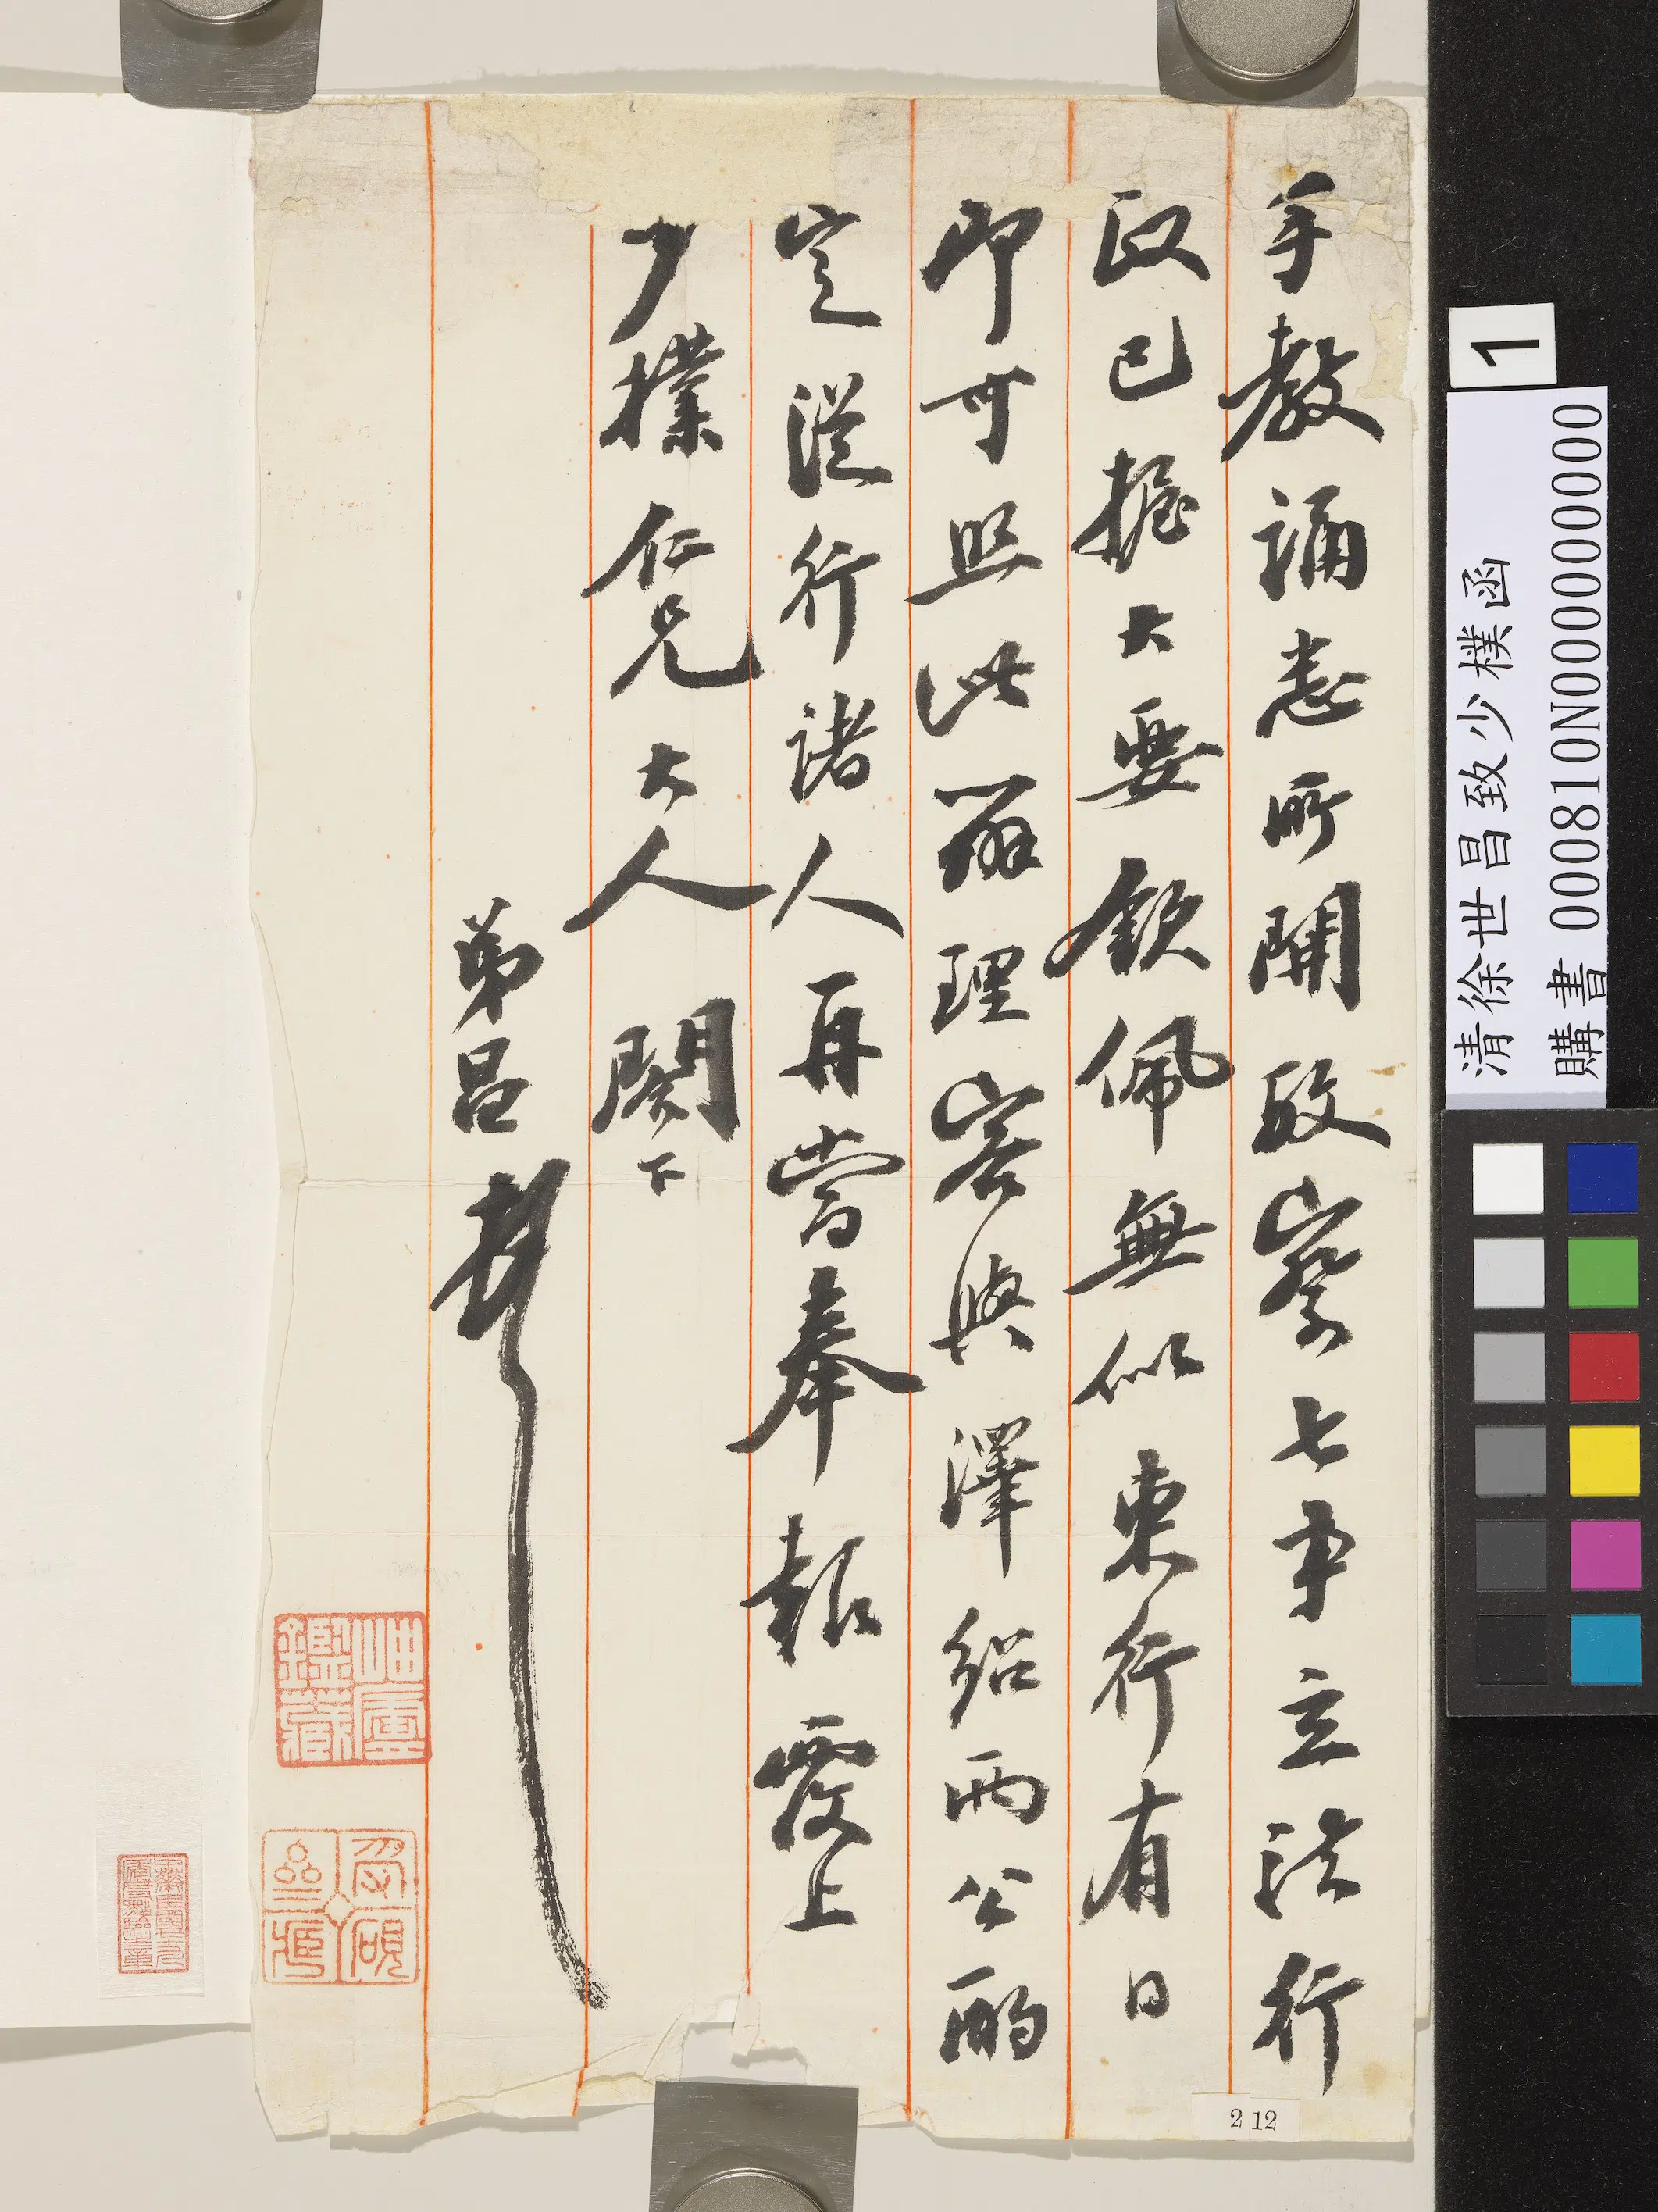 手教誦悉所開政察七事立法行
政已握大要欽佩無似東行有日
即可照此辦理容與澤紹兩公酌
定從行諸人再當奉報覆上
少樸仁兄大人閣下
弟昌頓
岫廬鑑藏
212
1
清徐世昌致少樸函
購書 000810N000000000